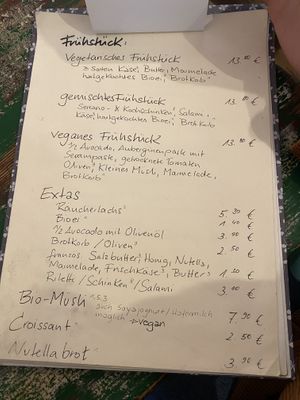 Frühstück:
Vegetarisches Frühstück 13.00 €
3 Sorten Käse, Butter, Marmelade
hartgekochtes Bioei, Brotkorb
gemischtes Frühstück 13.00 €
Serrano- & Kochschinken, Salami,
Käse, hartgekochtes Bioei, Brotkorb
Veganes Frühstück 13.00 €
1/2 Avocado, Auberginenpaste mit
Sesampaste, getrocknete Tomaten
Oliven, Kleines Müsli, Marmelade,
Brotkorb
Extas
Räucherlachs 5.50 €
Bioei 1.40 €
1/2 Avocado mit Olivenöl 3.90 €
Brotkorb / Oliven 2.50 €
französ. Salzbutter, Honig, Nutella,
Marmelade, Frischkäse, Butter 1.50 €
Rilette / Schinken / Salami 3.00 €
Bio-Müsli 7.90 €
auch Soyajoghurt / Hafermilch
möglich → vegan
Croissant 2.50 €
Nutella brot 3.90 €